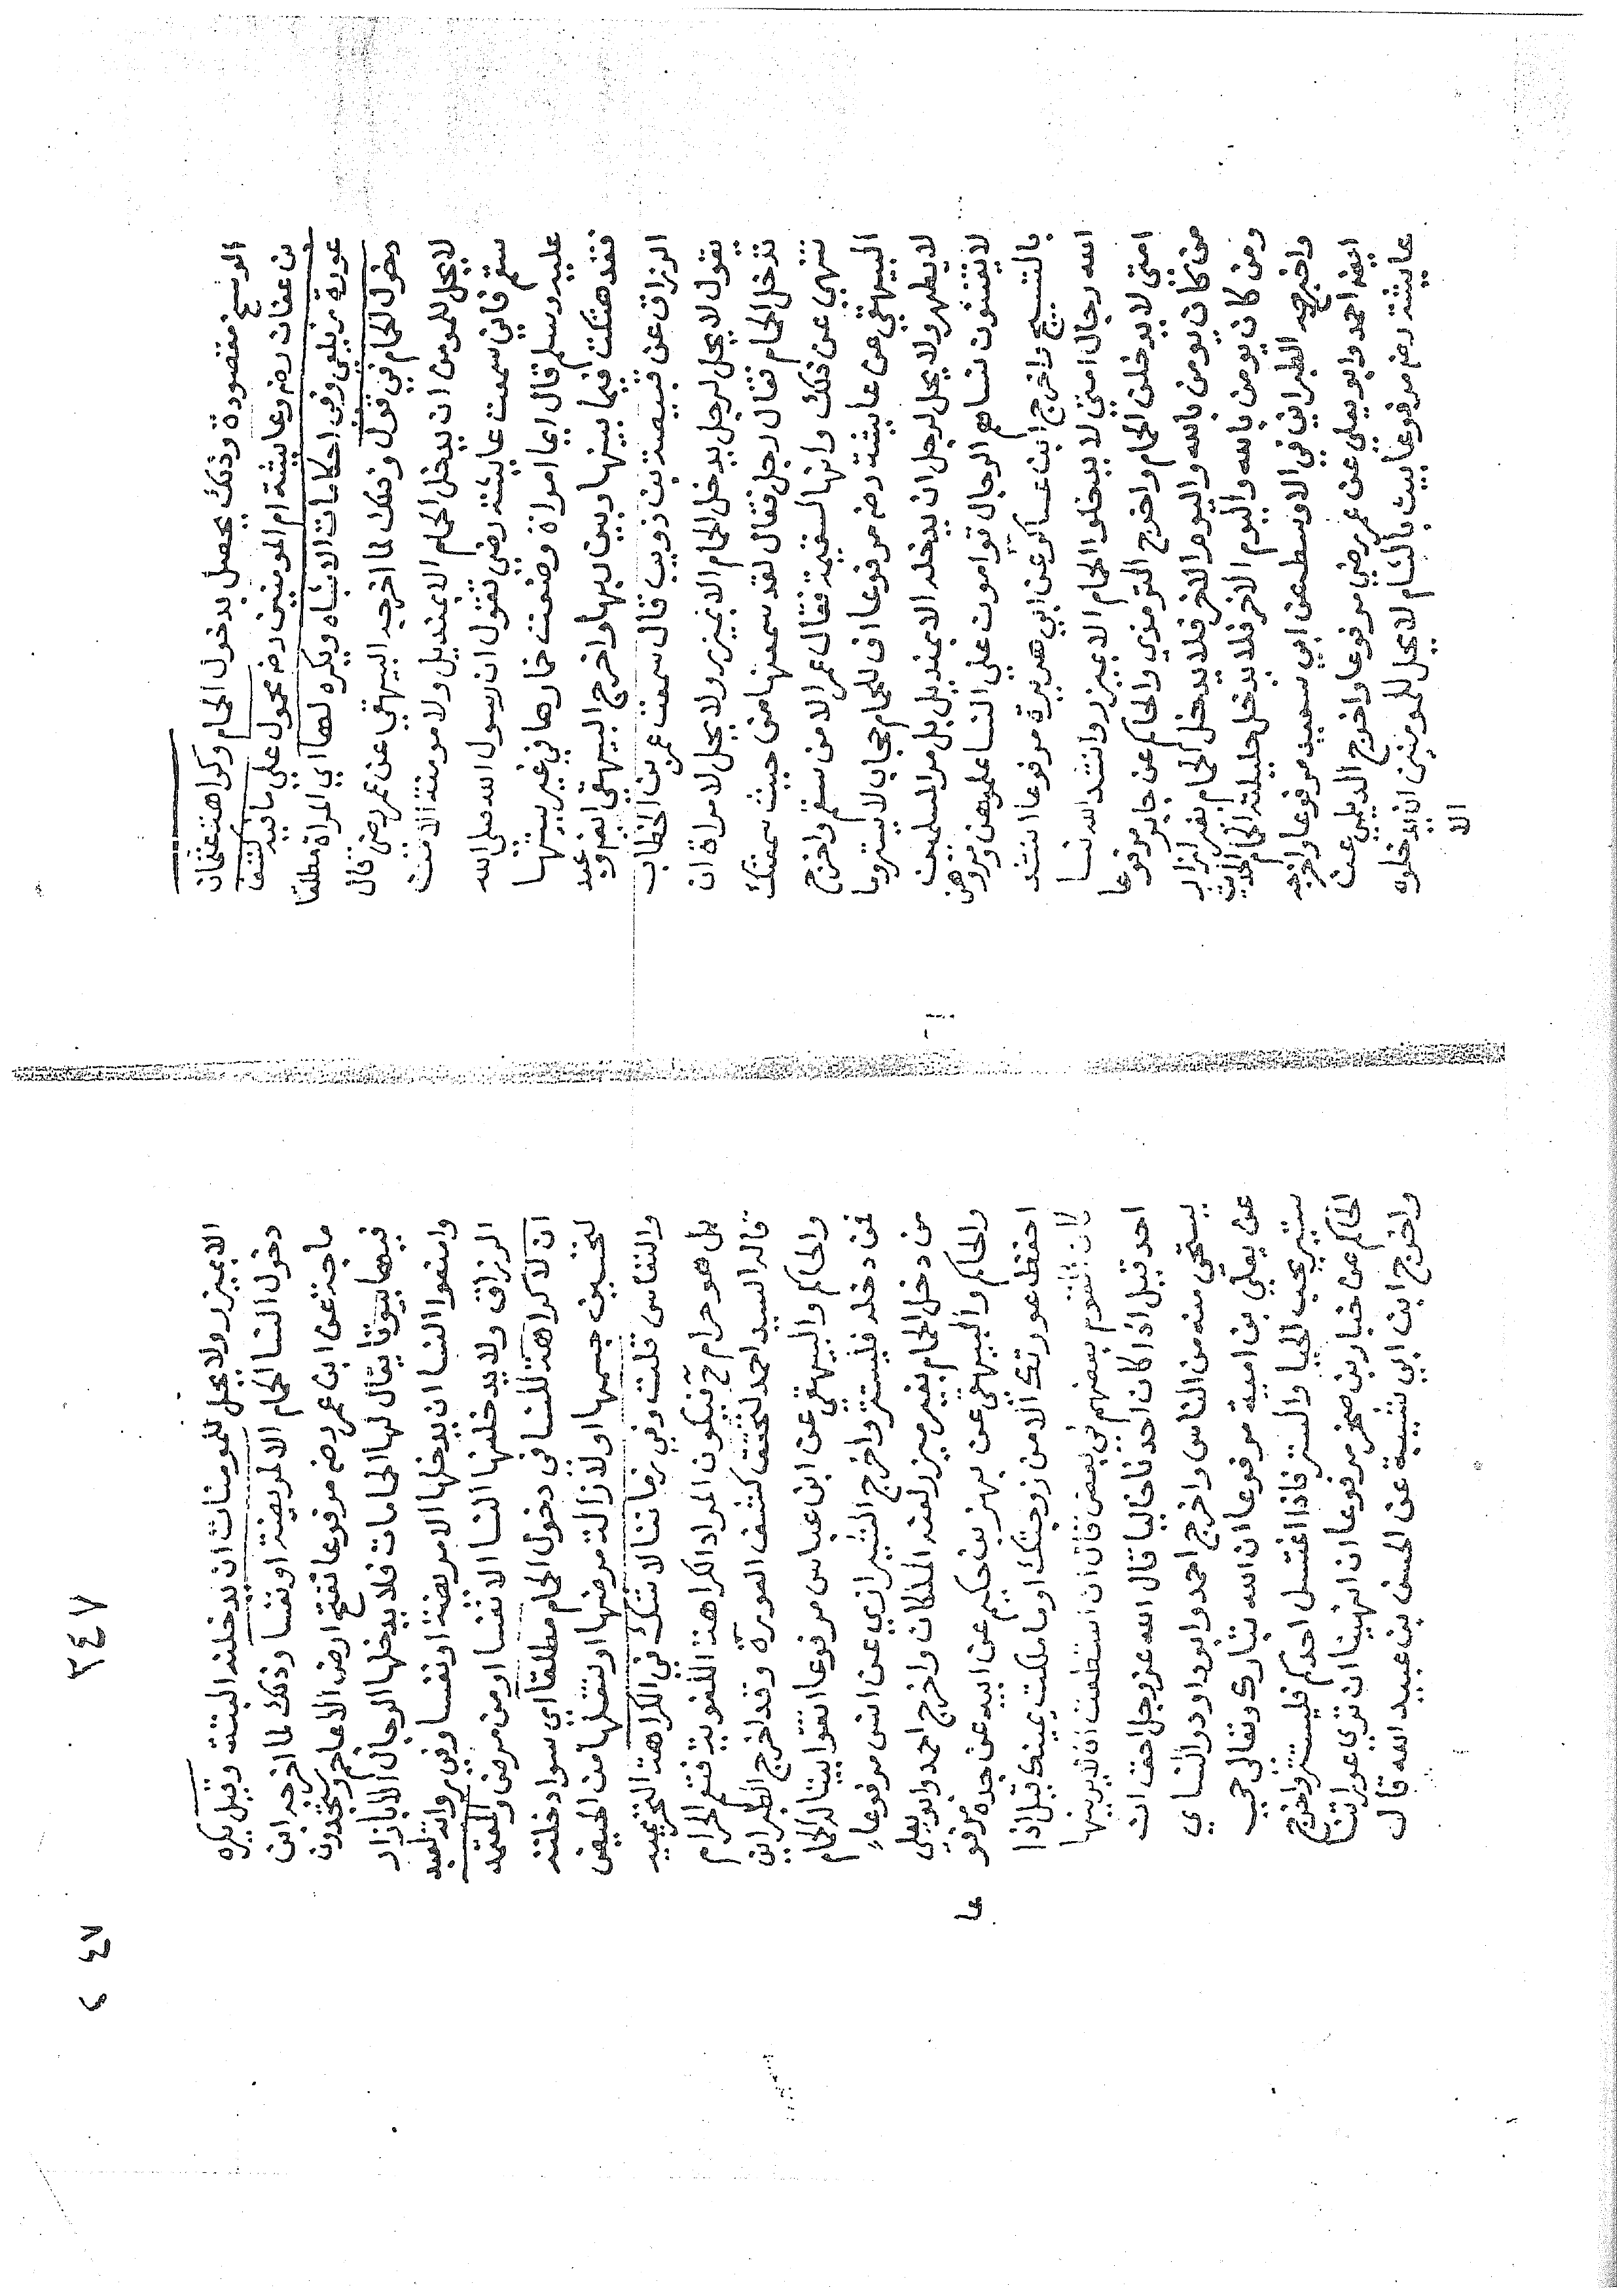 الوسخ مقصودة وذلك يحصل بدخول الحمام وكراهته عثمان
بن عفان رضه وعايشة ام المومنين رضه محمول علي ما فيه كشف
عورة زيلعي وفي احكامات الاشباه ويكره لها اي المراة مطلقا
دخول الحمام في قول وذلك لما اخرجه البيهقي عن عمر رضي قال
لا يحل للمومن ان يدخل الحمام الا بمنديل ولا مومنة الا من
سقم فاني سمعت عايشة رضي تقول ان رسول الله صلى الله
عليه وسلم قال ايما امراة وضعت خمارها في غير بيتها
فقد هتكت فيما بينها وبين ربها واخرج البيهقي ايضه وعبد
الرزاق عن قبيصة بن ذويب قال سمعت عمر بن الخطاب
يقول لا يحل لرجل يدخل الحمام الا بميزر ولا يحل لامراة ان
تدخل الحمام فقال رجل فقال لقد سمعتها من حيث سمعتك
تنهي عن ذلك وانها لسقيمة فقال عمر الا من سقم واخرج
البيهقي عن عايشة رضه مرفوعا اف للحمام حجاب لا يستر وما
لا يطهر ولا يحل لرجل ان يدخله الا بمنديل بل مر المسلمين
لا يفتنون نساهم الرجال قوامون علي النسا علموهن ومروهن
بالتسبيح واخرج ابن عساكر عن ابي هريرة مرفوعا انشد
الله رجال امتي لا يدخلوا الحمام الا بميزر وانشد الله نسا
امتي لا يدخلن الحمام واخرج الترمذي والحاكم عن جابر مرفوعا
من كان يومن بالله واليوم الاخر فلا يدخل الحمام بغير ازار
ومن كان يومن بالله واليوم الاخر فلا يدخل حليلته الحمام الحديث
واخرجه الطبراني في الاوسط عن ابي سعيد مرفوعا واخرجه
ايضه احمد وابو يعلي عن عمر رضي مرفوعا واخرج الديلمي عن
عايشة رضه مرفوعا بيت بالشام لا يحل للمومنين ان يدخلوه
الا
٢٤٧
٢٤٧
الا بميزر ولا يحل للمومنات ان يدخلنه البتة وقيل يكره
دخول النسا الحمام الا لمريضة او نفسا وذلك لما اخرجه ابن
ماجة عن ابن عمر رضه مرفوعا تفتح ارض الاعاجم وستجدون
فيها بيوتا يقال لها الحمامات فلا يدخلها الرجال الا بازار
وامنعوا النسا ان يدخلها الا مريضة او نفسا وفي رواية لعبد
الرزاق ولا يدخلنها النسا الا نفسا او من مرض والمعتمد
ان لا كراهة للنسا في دخول الحمام مطلقا اي سوا دخلته
لتحسين جسمها او لازالة مرضها او تغسلها من الحيض
والنفاس قلت وفي زماننا لا شك في الكراهة التحريمية
بل هو حرام ح فيكون المراد الكراهة اللغوية فتعم الحرام
قاله السيد احمد لتحقق كشف العورة وقد اخرج الطبراني
والحاكم والبيهقي عن ابن عباس مرفوعا اتقوا بيتا له الحمام
فمن دخله فليستتر واخرج الشيرازي عن انس مرفوعا
من دخل الحمام بغير ميزر لعنه الملكان واخرج احمد وابو يعلي
والحاكم والبيهقي عن بهز بن حكيم عن ابيه عن جده مرفو
عا
احفظ عورتك الا من زوجتك او ما ملكت يمينك قيل اذا
كان القوم بعضهم في بعض قال ان استطعت ان لا يرينها
احد قيل اذا كان احدنا خاليا قال الله عز وجل احق ان
يستحي منه من الناس واخرج احمد وابو داود والنساي
عن يعلي بن امية مرفوعا ان الله تبارك وتعالي حيي
ستير يحب الحيا والستر فاذا اغتسل احدكم فليستتر واخرج
الحاكم عن جبار بن صخر مرفوعا ان انهينا ان تري عوراتنا
واخرج ابن ابي شيبة عن الحسن بن عبيد الله قال